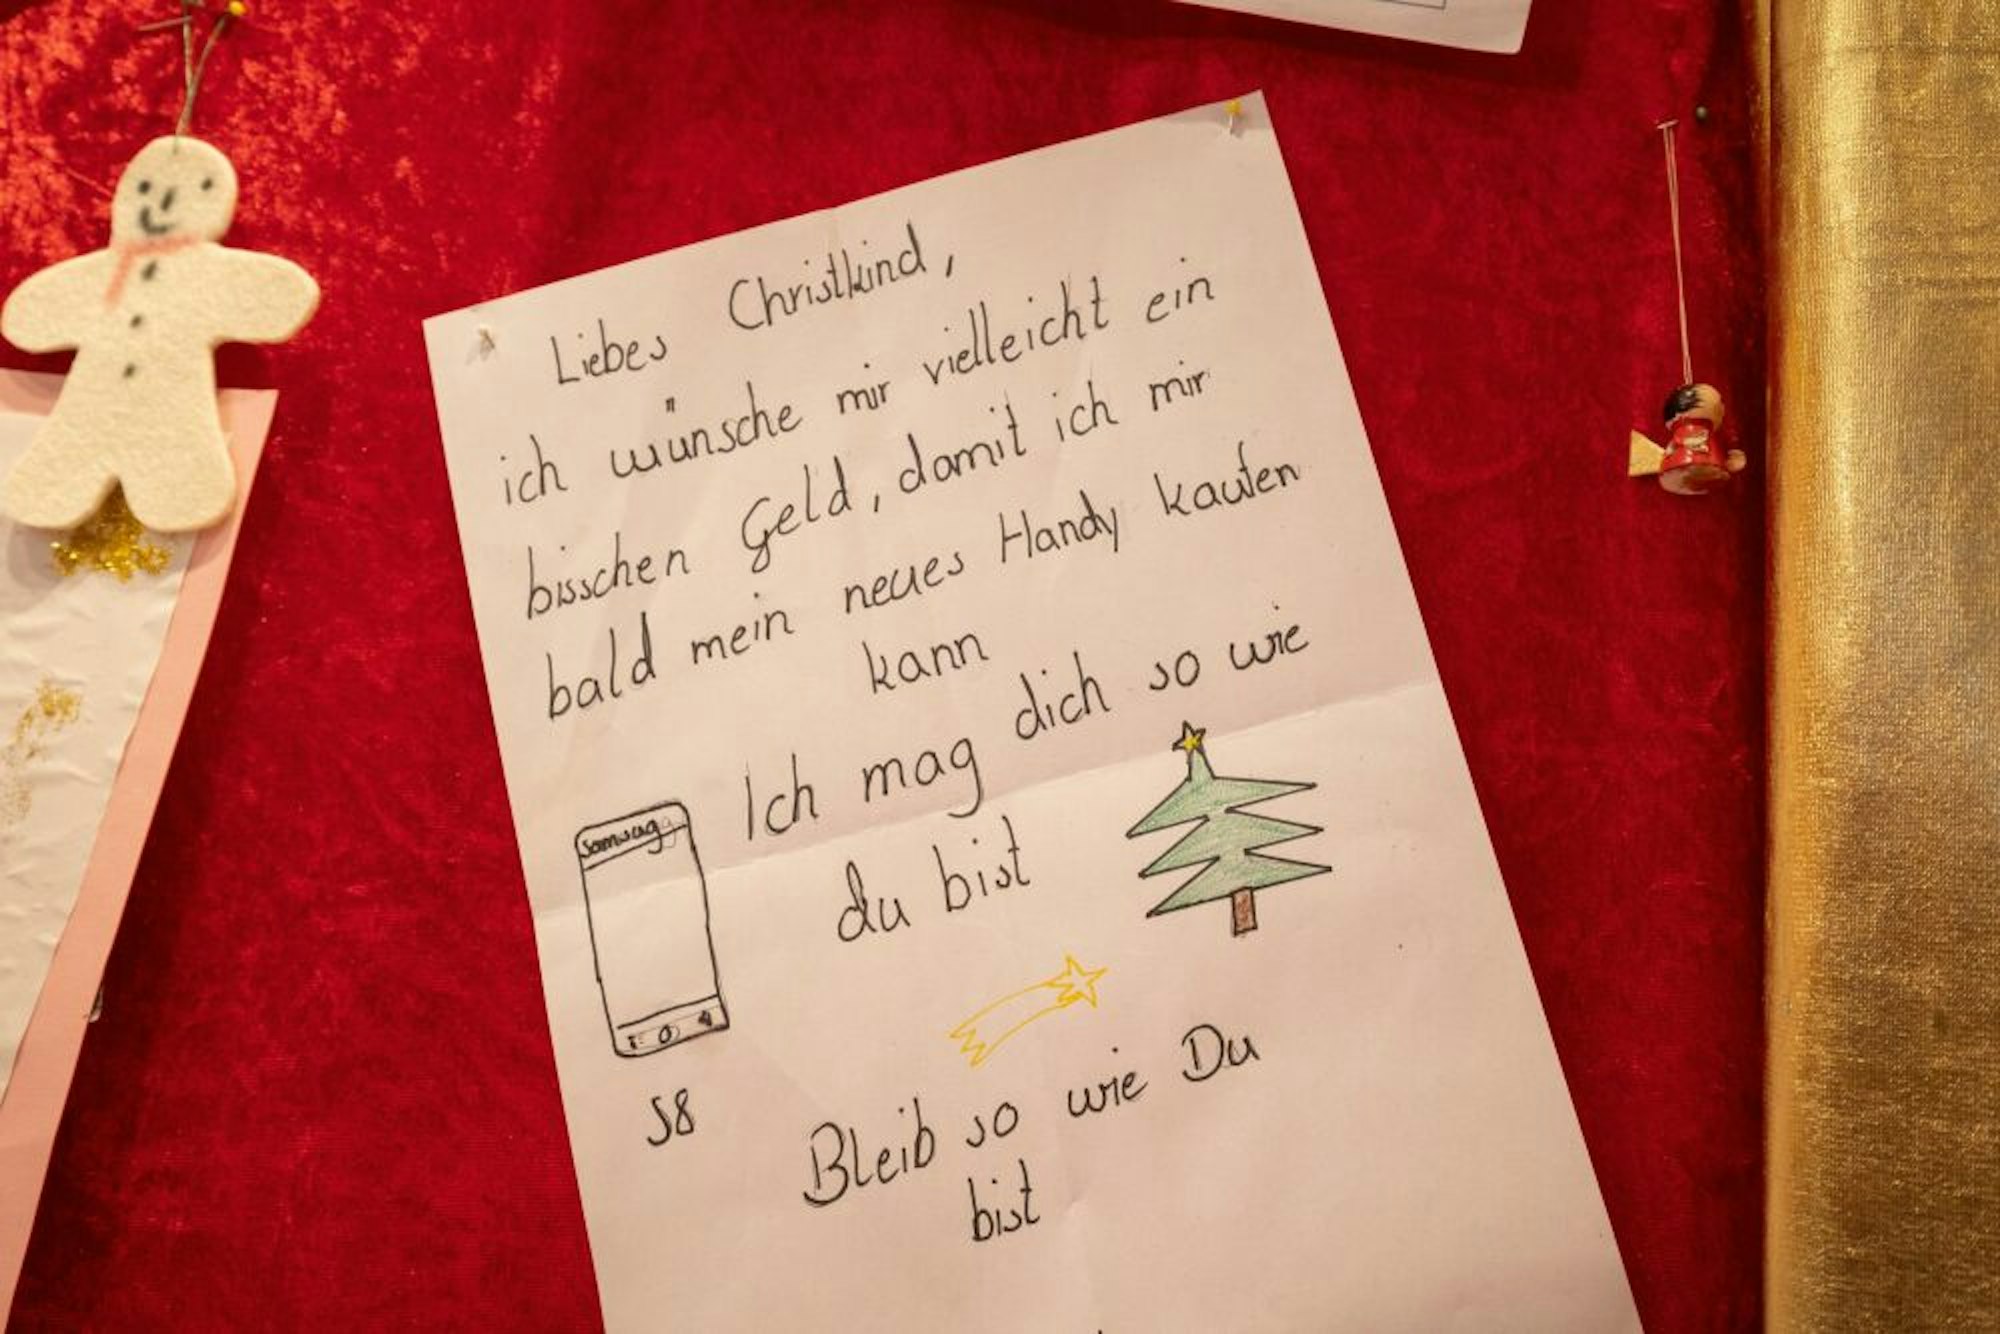 Liebes Christkind,
ich wünsche mir vielleicht ein
bisschen Geld, damit ich mir
bald mein neues Handy kaufen
kann
Ich mag dich so wie
du bist
Samsug
S8
Bleib so wie Du
bist